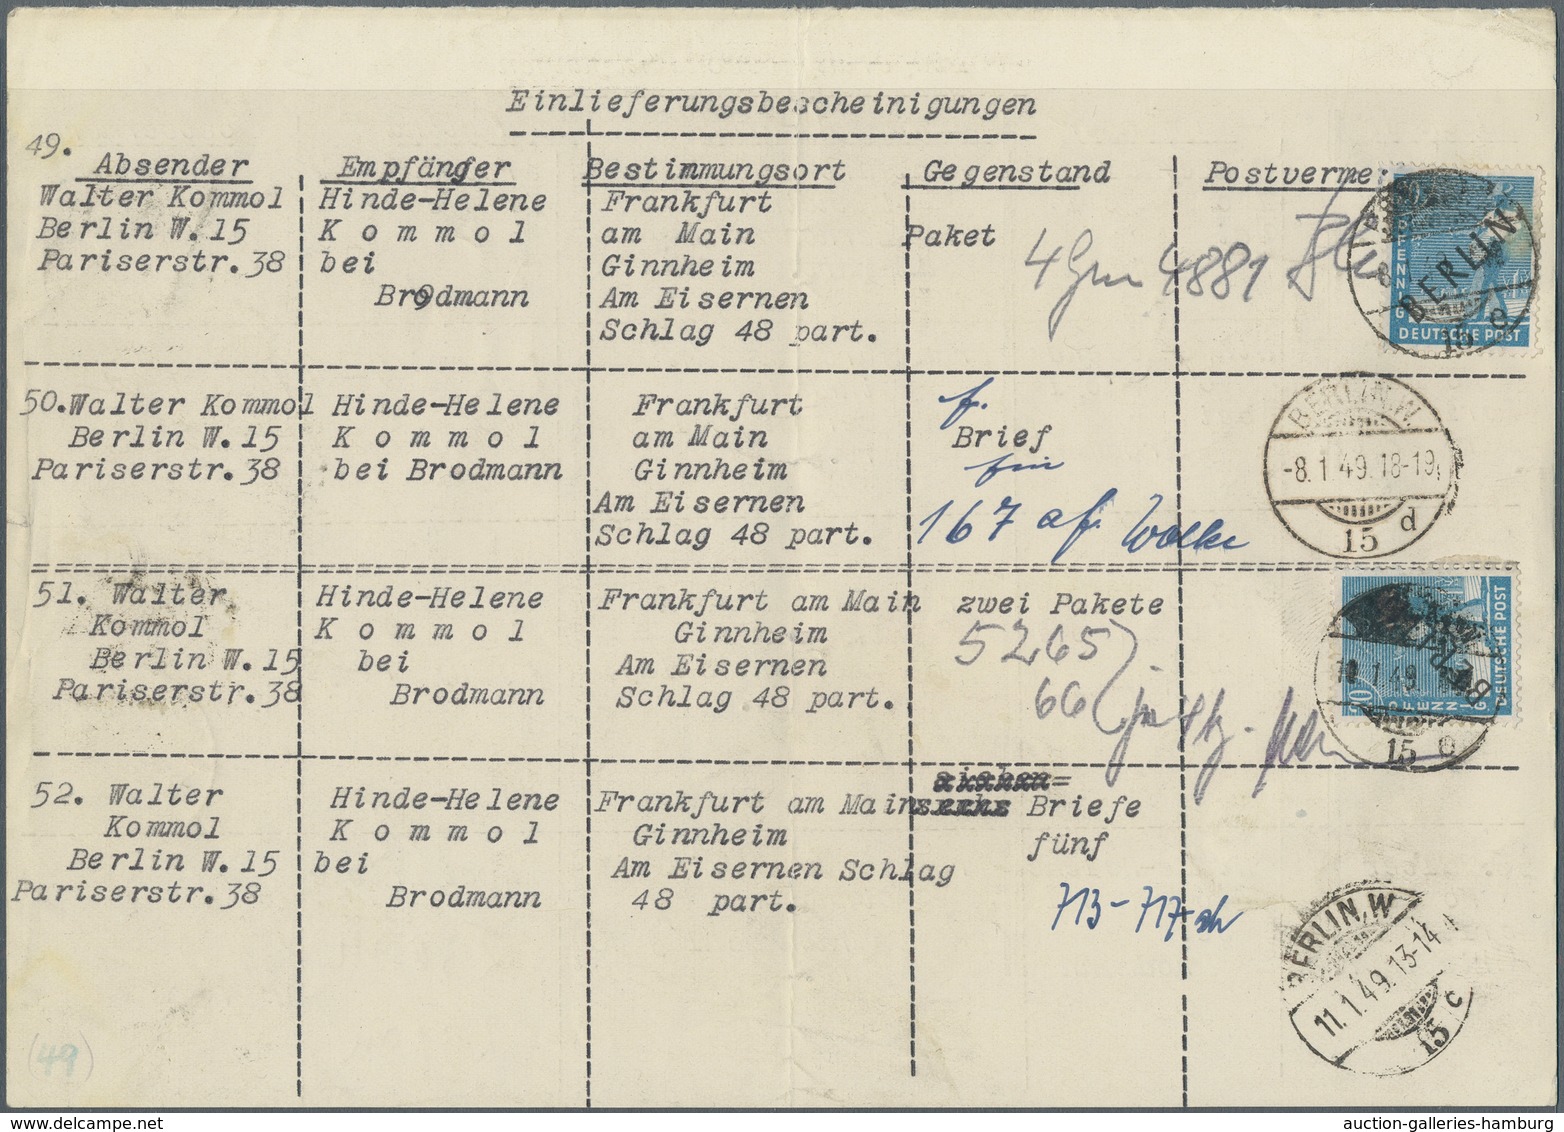 Einlieferungsbescheinigungen
49.
Absender Empfänger Bestimmungsort Gegenstand Postverme
Walter Kommol
Berlin W.15
Pariserstr.38
Hinde-Helene
K o m m o l
bei
Brodmann
Frankfurt
am Main
Ginnheim
Am Eisernen
Schlag 48 part.
Paket
4881
BERLIN
DEUTSCHE POST
15
50.Walter Kommol
Berlin W.15
Pariserstr.38
Hinde-Helene
K o m m o l
bei Brodmann
Frankfurt
am Main
Ginnheim
Am Eisernen
Schlag 48 part.
Brief
167
BERLIN W
-8.1.49.18-19
15 d
51. Walter
Kommol
Berlin W.15
Pariserstr.38
Hinde-Helene
K o m m o l
bei
Brodmann
Frankfurt am Main
Ginnheim
Am Eisernen
Schlag 48 part.
zwei Pakete
5265
66
PFENNIG
DEUTSCHE POST
1.49
15
52. Walter
Kommol
Berlin W.15
Pariserstr.38
Hinde-Helene
K o m m o l
bei
Brodmann
Frankfurt am Main
Ginnheim
Am Eisernen Schlag
48 part.
Briefe
fünf
713-717
BERLIN W
11.1.49.13-14
15 c
(49)
auction-galleries-hamburg